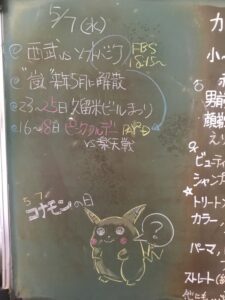 5/7(水)
@西武 vs ソフトバンク FBS 18:15〜
@"嵐" 来年5月に解散
@23〜25日 久留米ビールまつり
@16〜18日 ピクカルデー
vs楽天戦
5 7
コナモンの日
?
カ
小
男
顔
えり
ビューティ
シャンプ
トリート
カラー、
パーマ、
ストレート
他にも…